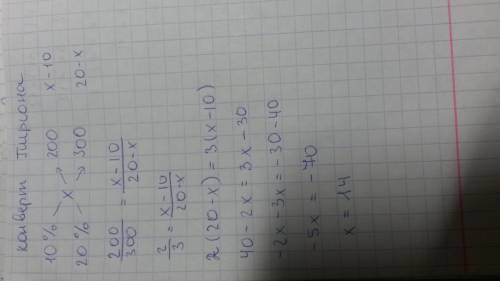 конверт Пирсона
10% 200 x-10
x
20% 300 20-x
200/300 = x-10/20-x
2/3 = x-10/20-x
2(20-x) = 3(x-10)
40-2x = 3x-30
-2x-3x = -30-40
-5x = -70
x = 14